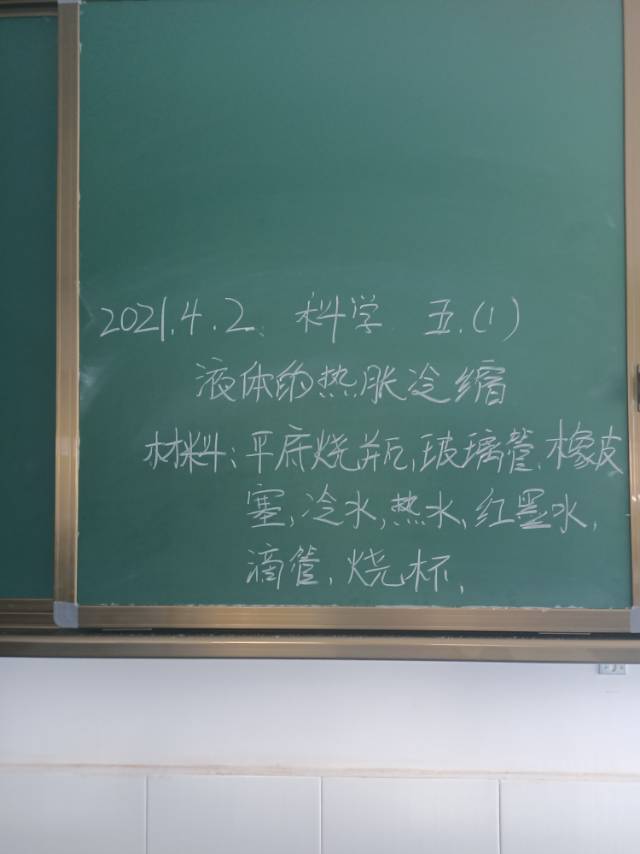 2021.4.2. 科学 五.(1)
液体的热胀冷缩
材料:平底烧瓶,玻璃管,橡皮
塞,冷水,热水,红墨水,
滴管,烧杯,